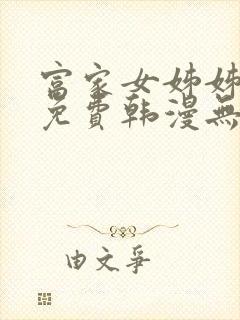 富家女姊姊
免費韩漫無
由文爭